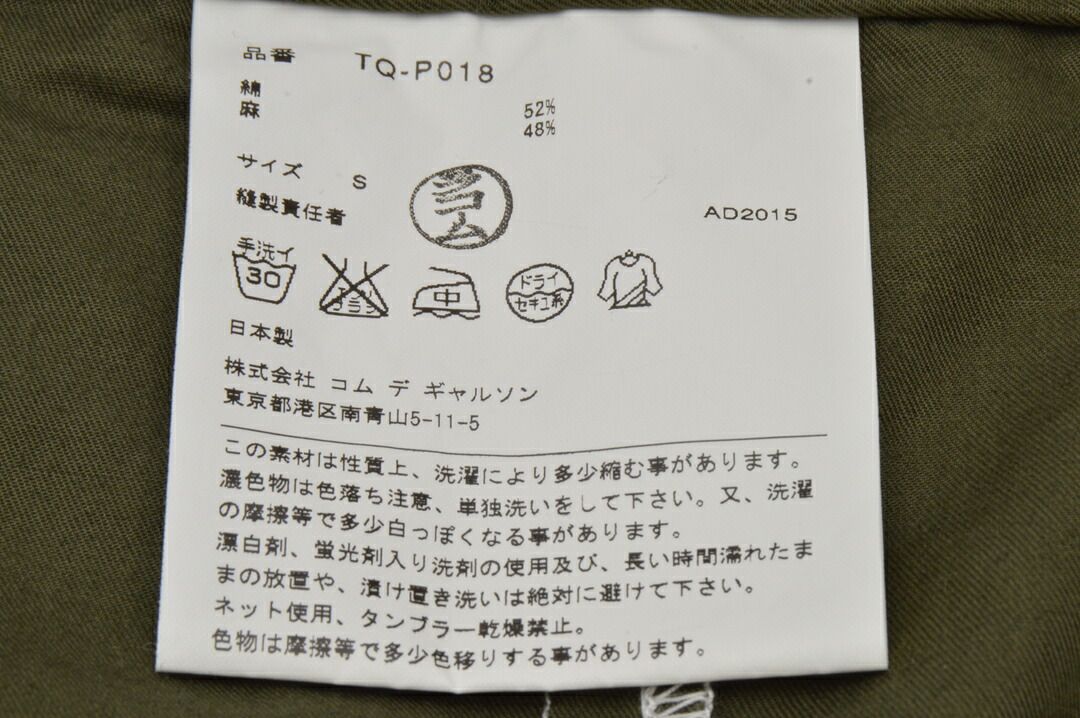 品番 TQ-P018
綿 52%
麻 48%
サイズ S
縫製責任者
コム
AD2015
手洗イ
30
中
ドライ
セキユ系
日本製
株式会社 コム デ ギャルソン
東京都港区南青山5-11-5
この素材は性質上、洗濯により多少縮む事があります。
濃色物は色落ち注意、単独洗いをして下さい。又、洗濯
の摩擦等で多少白っぽくなる事があります。
漂白剤、蛍光剤入り洗剤の使用及び、長い時間濡れたま
まの放置や、漬け置き洗いは絶対に避けて下さい。
ネット使用、タンブラー乾燥禁止。
色物は摩擦等で多少色移りする事があります。